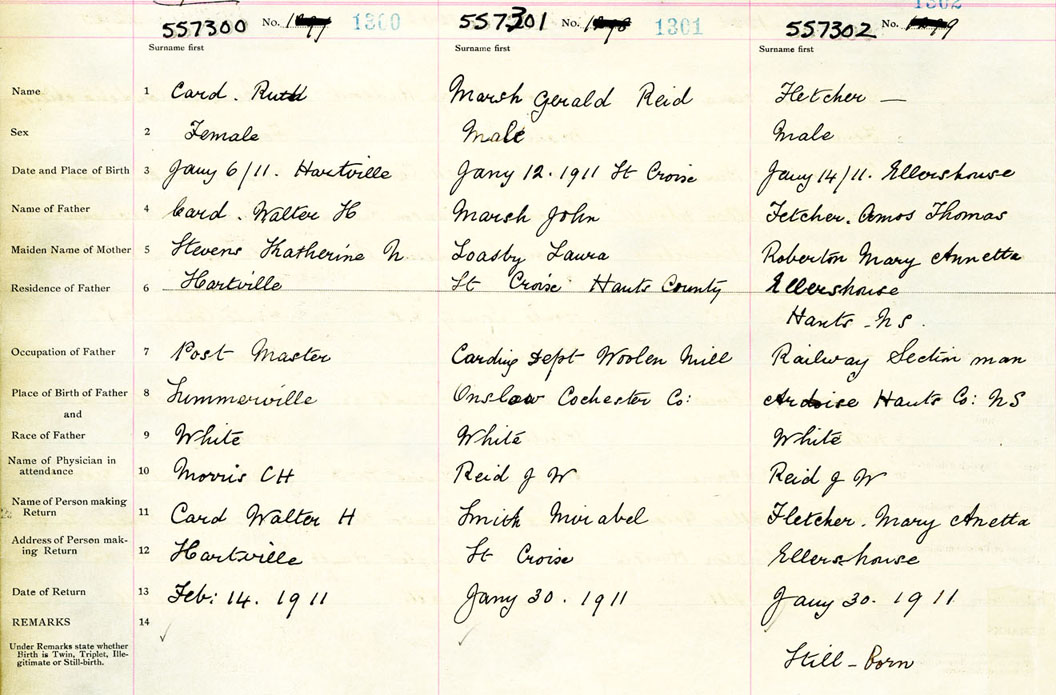 557300 No. 1300 557301 No. 1301 557302 No. 1302
Surname first Surname first Surname first
Name 1 Card. Ruth Marsh Gerald Reid Fletcher —
Sex 2 Female Male Male
Date and Place of Birth 3 Jany 6/11. Hartville Jany 12. 1911 St Croise Jany 14/11. Ellershouse
Name of Father 4 Card. Walter H Marsh John Fetcher. Amos Thomas
Maiden Name of Mother 5 Stevens Katherine N. Loasby Laura Roberton Mary Annetta
Residence of Father 6 Hartville St Croise Hants County Ellershouse
Hants - NS.
Occupation of Father 7 Post Master Carding Dept Woolen Mill Railway Section man
Place of Birth of Father 8 Summerville Onslow Cochester Co: Ardoise Hants Co: NS
and
Race of Father 9 White White White
Name of Physician in
attendance 10 Morris CH Reid J W Reid J W
Name of Person making
Return 11 Card Walter H Smith Mirabel Fletcher. Mary Anetta
Address of Person mak-
ing Return 12 Hartville St Croise Ellershouse
Date of Return 13 Feb: 14. 1911 Jany 30. 1911 Jany 30. 1911
REMARKS 14
Under Remarks state whether
Birth is Twin, Triplet, Ille-
gitimate or Still-birth. Still-Born